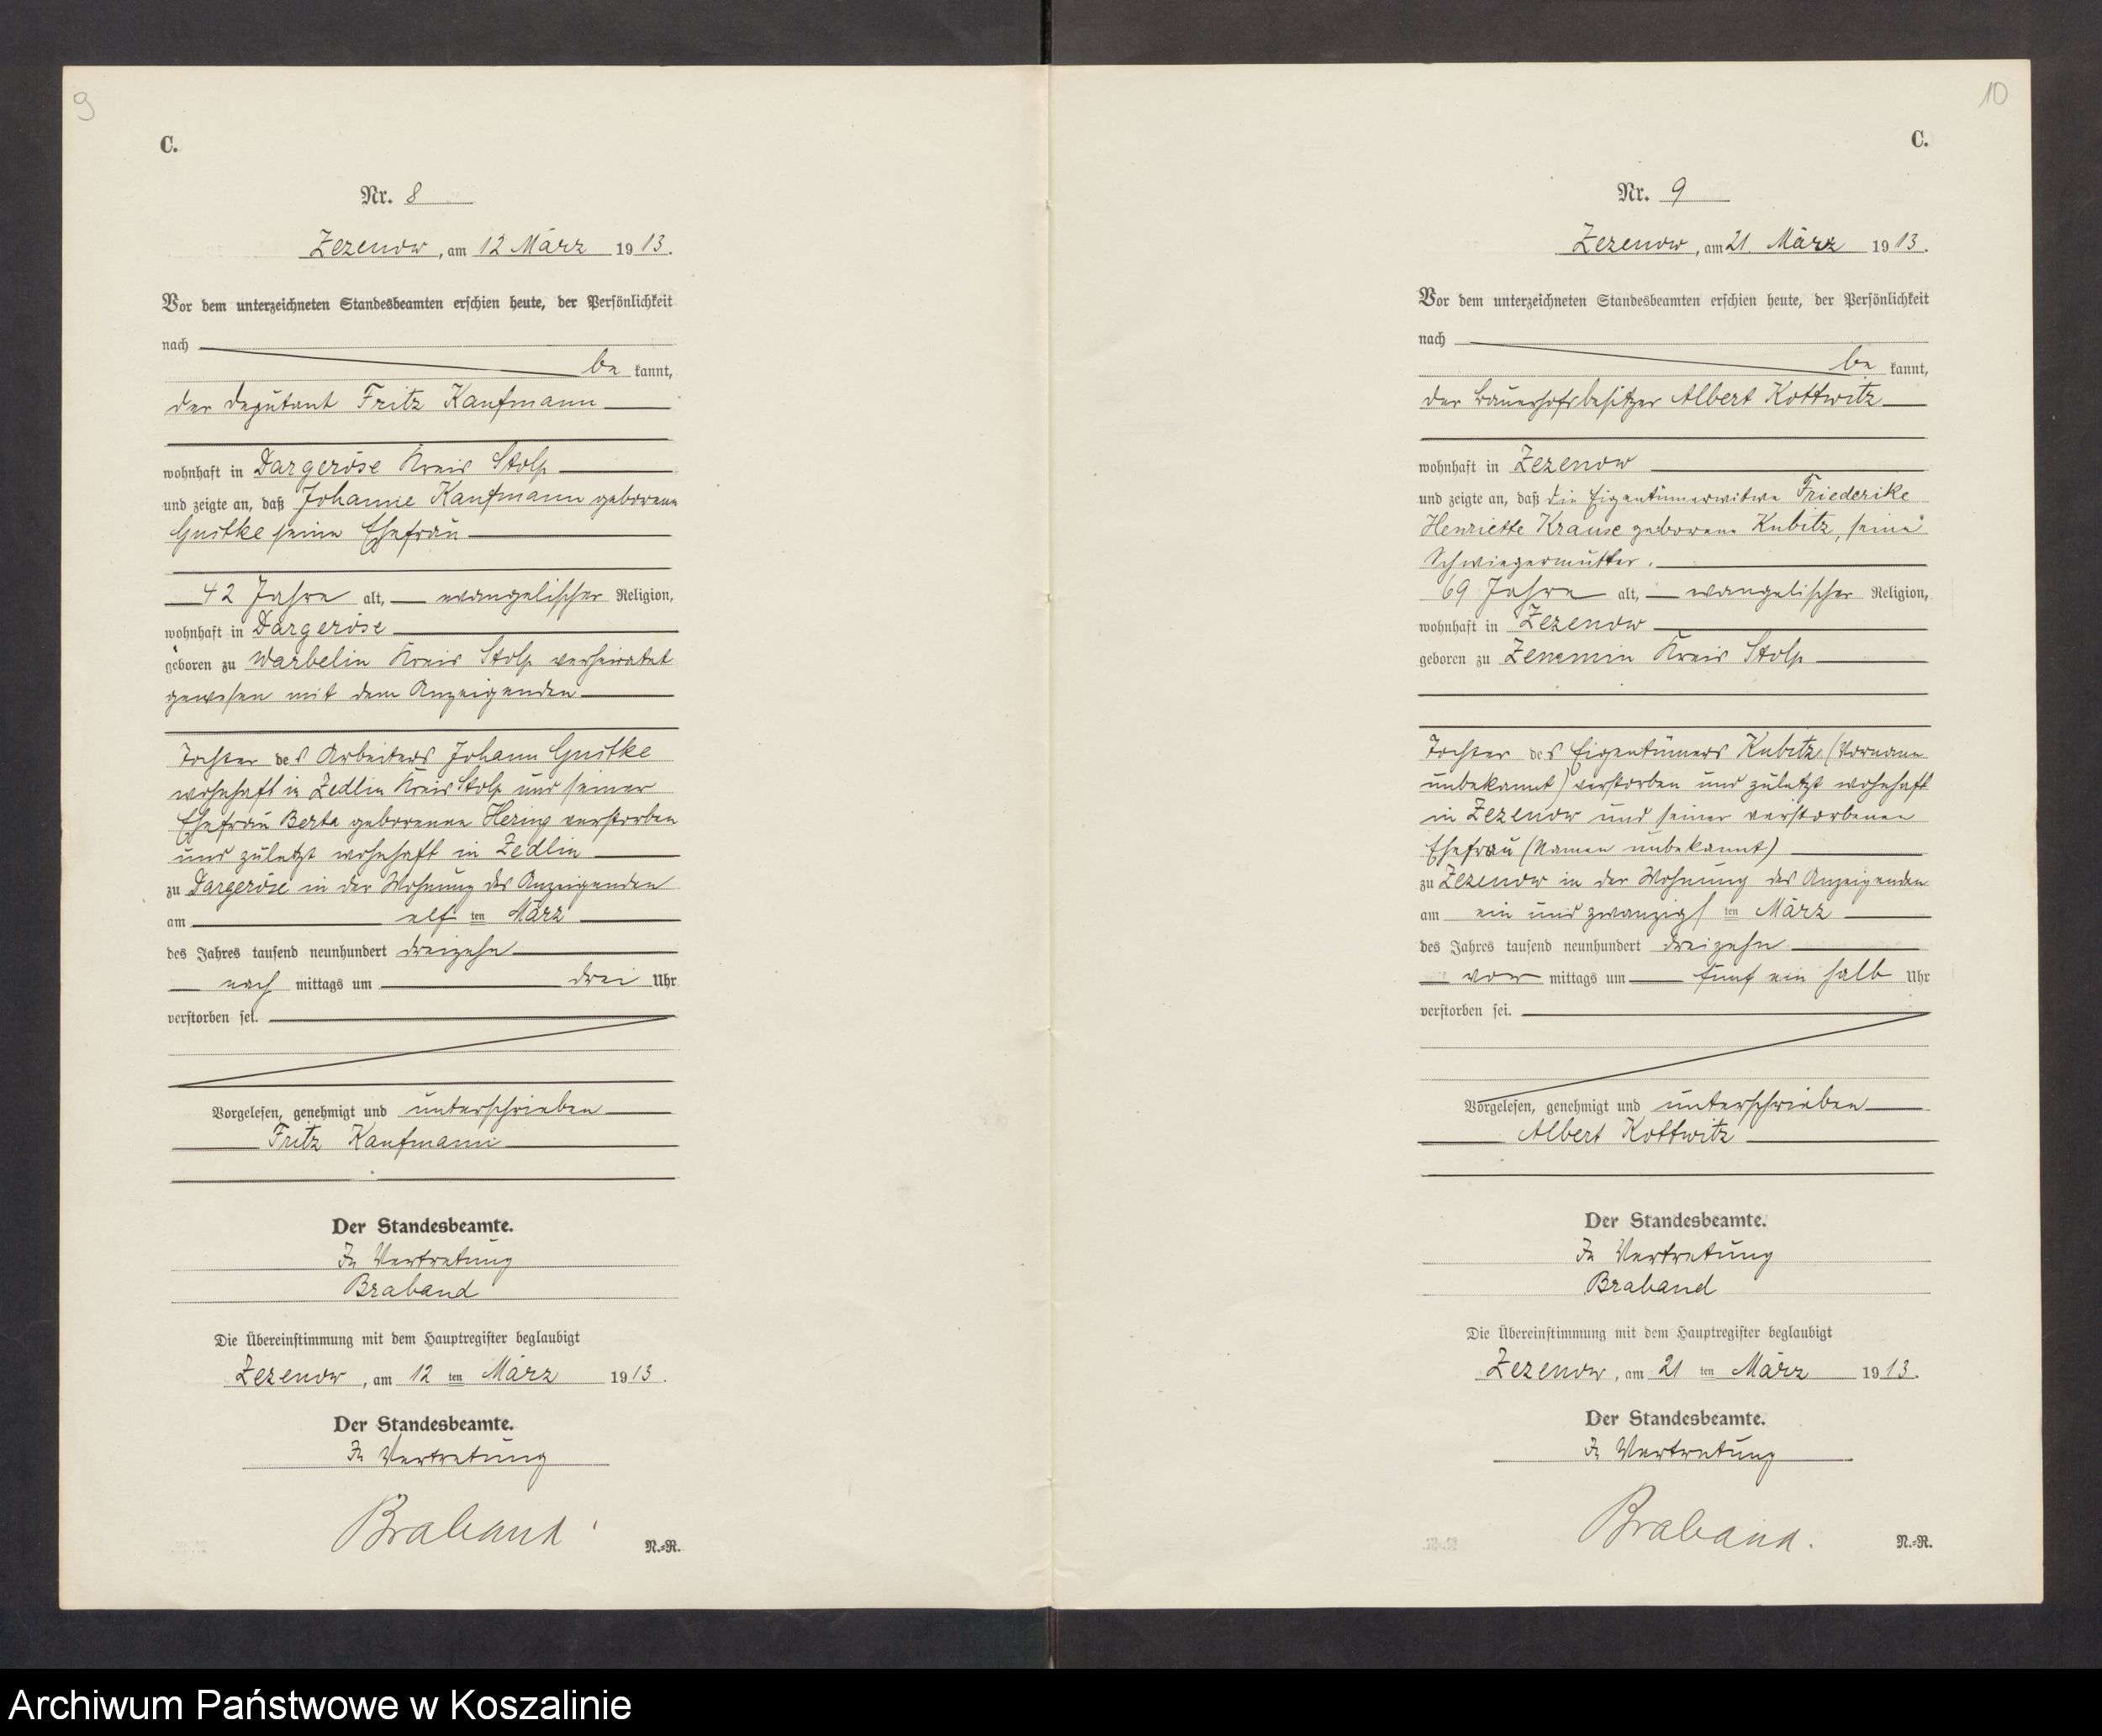 9
C.
Nr. 8
Zezenow, am 12 März 1913.
Vor dem unterzeichneten Standesbeamten erschien heute, der Persönlichkeit
nach
be kannt,
der Deputant Fritz Kaufmann
wohnhaft in Dargeröse Kreis Stolp
und zeigte an, daß Johanne Kaufmann geborene
Gustke seine Ehefrau
42 Jahre alt, evangelischer Religion,
wohnhaft in Dargeröse
geboren zu Warbelin Kreis Stolp verheiratet
gewesen mit dem Anzeigenden
Tochter des Arbeiters Johann Gustke
wohnhaft in Zedlin Kreis Stolp und seiner
Ehefrau Berta geborenen Hering verstorben
und zuletzt wohnhaft in Zedlin
zu Dargeröse in der Wohnung des Anzeigenden
am elf ten März
des Jahres tausend neunhundert dreizehn
nach mittags um drei Uhr
verstorben sei.
Vorgelesen, genehmigt und unterschrieben
Fritz Kaufmann
Der Standesbeamte.
In Vertretung
Braband
Die Übereinstimmung mit dem Hauptregister beglaubigt
Zezenow, am 12 ten März 1913.
Der Standesbeamte.
In Vertretung
Braband
N.=R.
10
C.
Nr. 9
Zezenow, am 21. März 1913.
Vor dem unterzeichneten Standesbeamten erschien heute, der Persönlichkeit
nach
be kannt,
der Bauerhofsbesitzer Albert Kottwitz
wohnhaft in Zezenow
und zeigte an, daß die Eigentümerwitwe Friederike
Henriette Krause geborene Kubitz, seine
Schwiegermutter.
69 Jahre alt, evangelischer Religion,
wohnhaft in Zezenow
geboren zu Zemmin Kreis Stolp
Tochter des Eigentümers Kubitz (Vorname
unbekannt) verstorben und zuletzt wohnhaft
in Zezenow und seiner verstorbenen
Ehefrau (Namen unbekannt)
zu Zezenow in der Wohnung des Anzeigenden
am ein und zwanzigs ten März
des Jahres tausend neunhundert dreizehn
vor mittags um fünf ein halb Uhr
verstorben sei.
Vorgelesen, genehmigt und unterschrieben
Albert Kottwitz
Der Standesbeamte.
In Vertretung
Braband
Die Übereinstimmung mit dem Hauptregister beglaubigt
Zezenow, am 21 ten März 1913.
Der Standesbeamte.
In Vertretung
Braband.
N.=R.
Archiwum Państwowe w Koszalinie